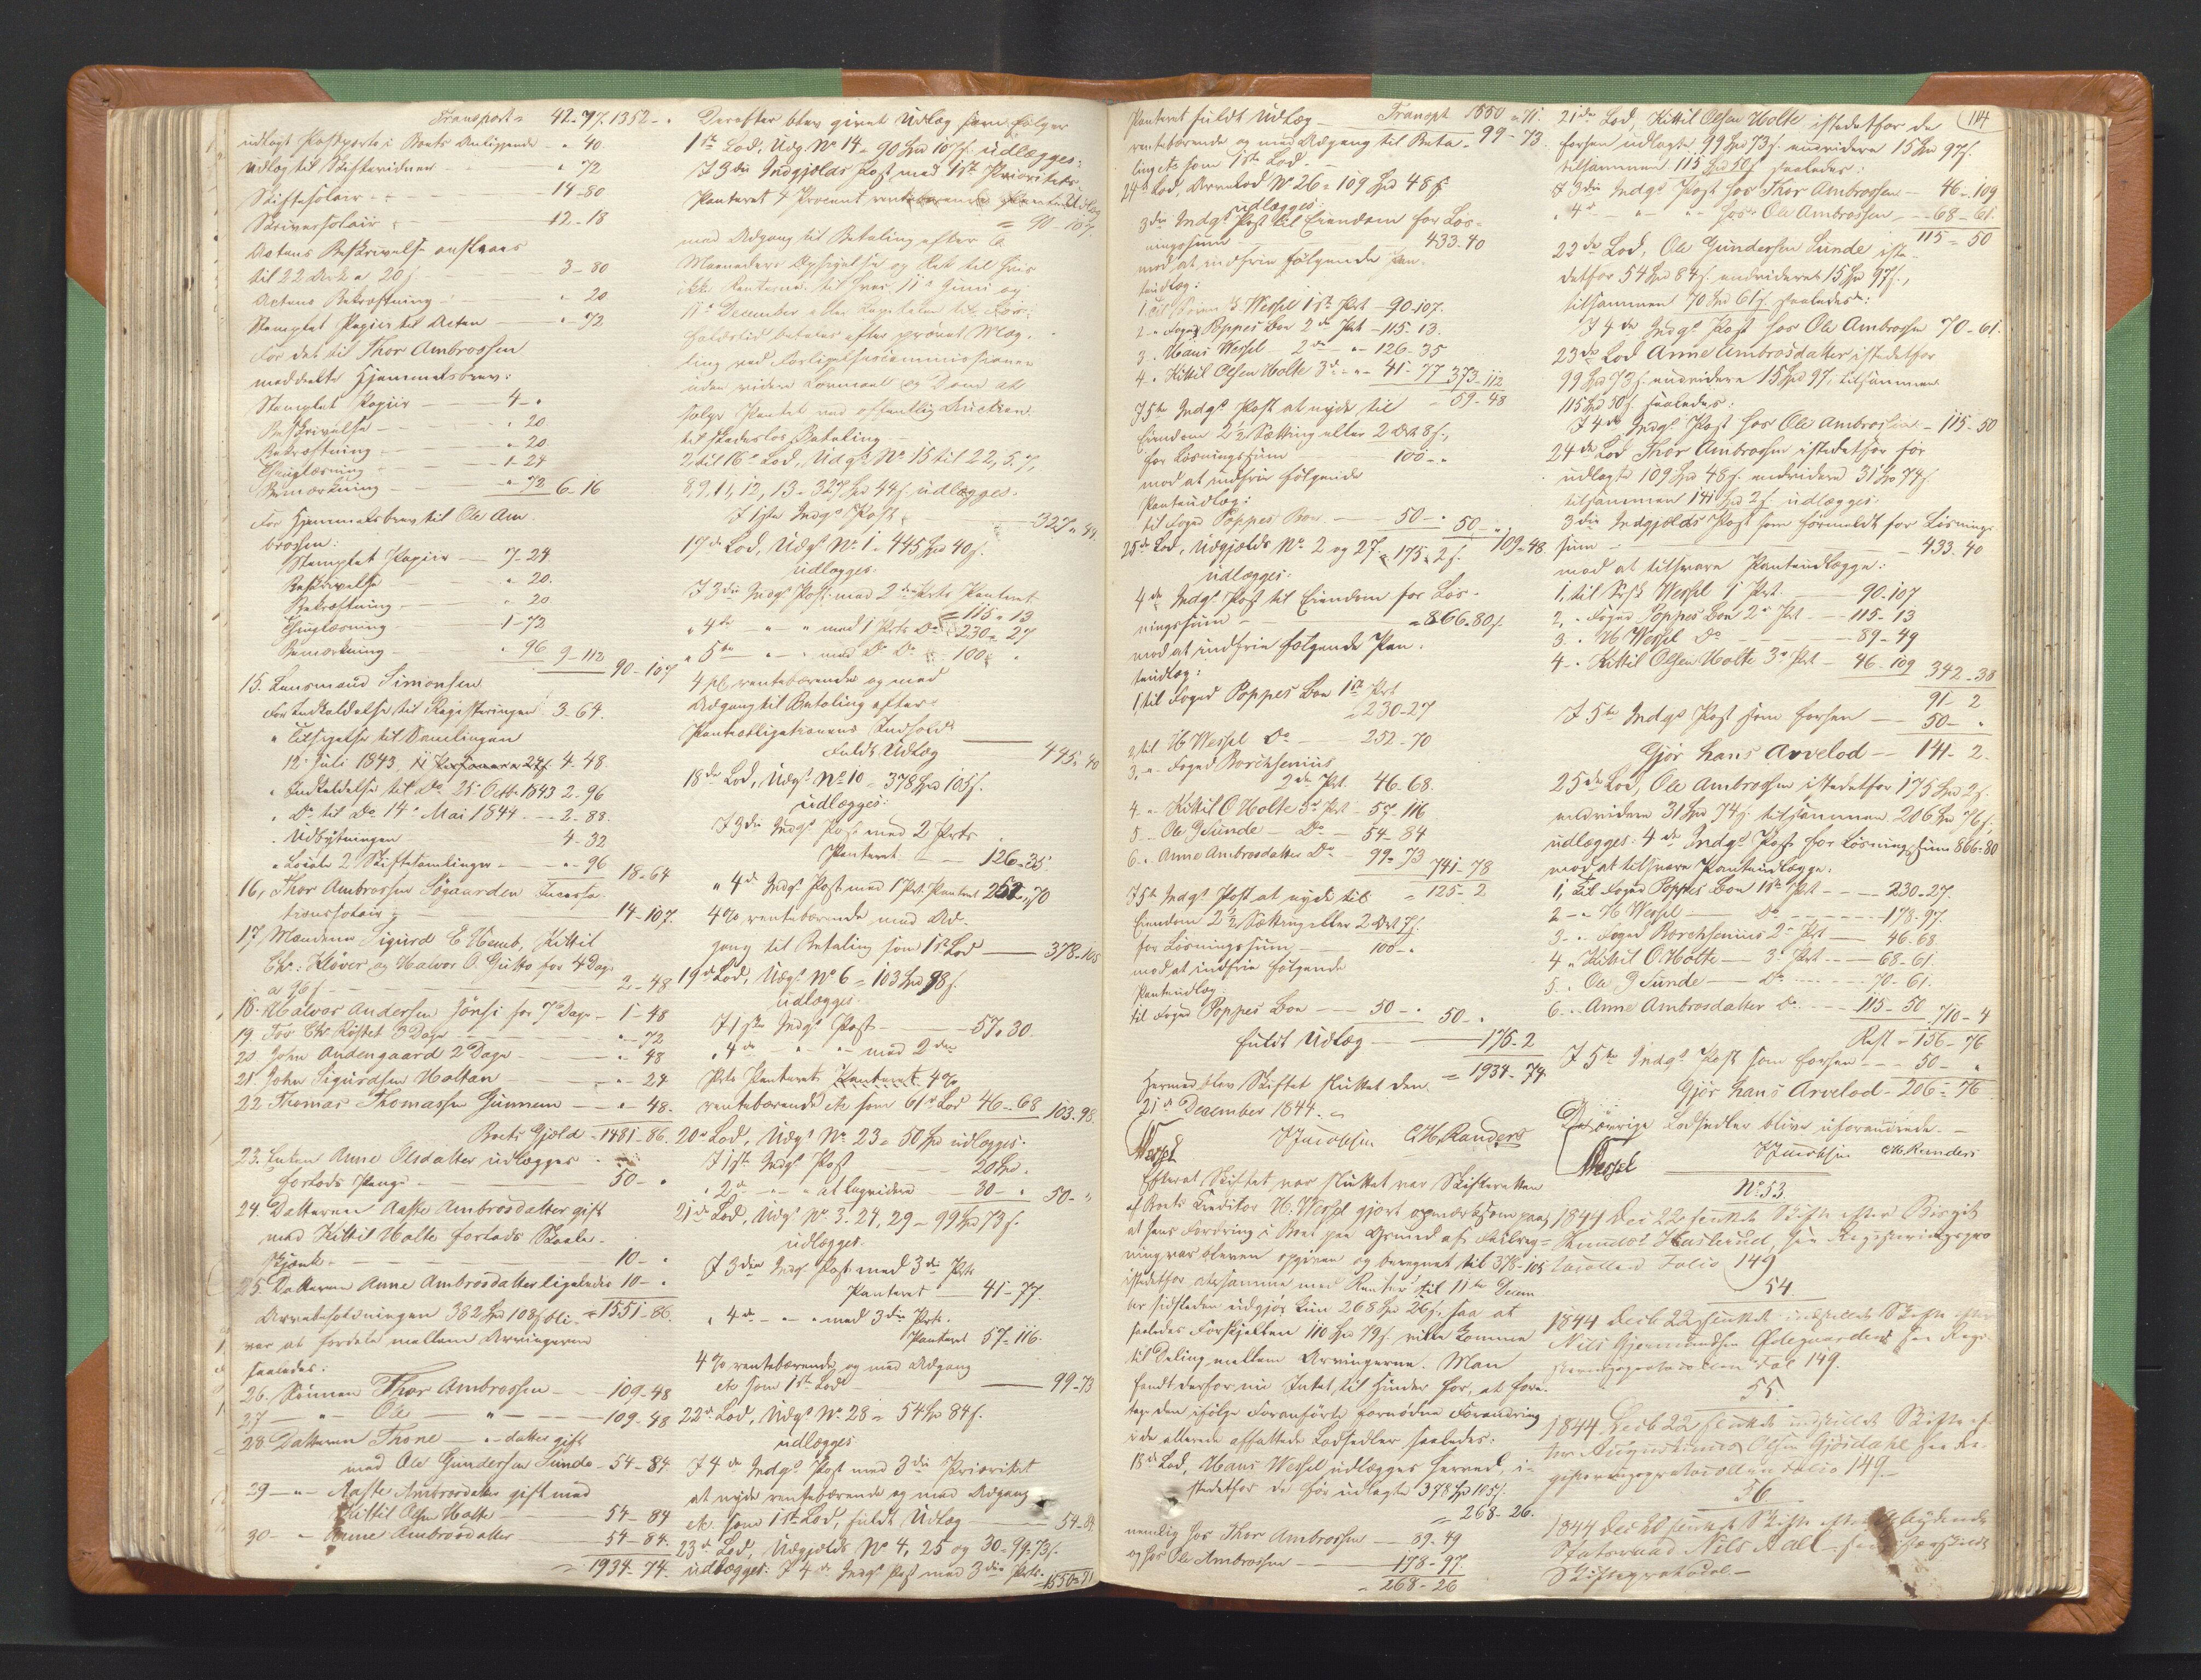 Transport = 42-97. 1352 - "
udlagt Postporto i Boets Anliggende - " 40.
Udlæg til Skifteridner - " 72
Skiftesalair - 14-80
Skriversalair - 12-18
Actens Beskrivelse ansLaaes
til 22 Ark a 20 f. 3-80
Actens Bekræftning - " 20
Stemplet Papiir til Acten - " 72
For det til Thor Ambrossen
meddeelte Hjemmelsbrev:
Stemplet Papiir - 4 - "
Beskrivelse - " 20
Bekræftning - " 20.
Thinglæsning - 1-24
Bemærkning - " 72 6-16
For Hjemmelsbrev til Ole Am-
brossen:
Stemplet Papiir - 7-24
Beskrivelse - " 20.
Bekræftning - " 20
Thinglæsning - 1-72
Bemærkning - " 96 9-112
90-107
15. Lensmand Simonsen
For Indkaldelse til Registeringen 3-64.
" Tilsigelse til Samlingen
12. Juli 1843 4-48
" Indkaldelse til Do 25. Octb 1843 2-96
" Do til Do 14. Mai 1844 - 2-88.
" Udbytningen 4-32
" Locale 2 Skiftesamlinger - " 96 18-64
16, Thor Ambrossen Søgaarden Incassa-
tionssalair 14-107.
17, Mændene Sigurd E Hemb, Kittil
Chr: Kløver og Halvor O. Gusto for 4 Dage
a 96 f 2-48
18. Halvor Andersen Jønsi for 7 Dage - 1-48
19. Tor Chr Røstet 3 Dage - " 72
20 John Andengaard 2 Dage - " 48
21. John Sigurdsen Holtan - " 24
22 Thomas Thomassen Gunnem - " 48.
Boets Gjæld = 1481-86.
23. Enken Anne Olsdatter udlægges
forlods Penge - 50 - "
24. Datteren Aaste Ambrosdatter gift
med Kittil Holte forlods Skaale-
skjænk - 10 - "
25. Datteren Anne Ambrosdatter ligeledes 10 - "
= 1551-86.
Arvebeholdningen 382 Spd 108 f bli-
ver at fordele mellem Arvingerne
saaledes:
26. Sønnen Thor Ambrossen - 109-48
27 - " - Ole - " - 109-48
28 Datteren Thone - " - datter gift
med Ole Gundersen Sunde - 54-84.
29 - " - Aaste Ambrosdatter gift med
Kittil Olsen Holte - 54-84
30 - " Anne Ambrosdatter 54-84.
= 1934-74.
Derefter blev givet Udlæg som følger
1ste Lod, Udg. No 14 = 90 Spd 107 f. udlægges:
I 3die Indgjælds Post med 1ste Prioritets
Panteret 4 Procent rentebærende
= 90-107.
med Adgang til Betaling efter 6
Maaneders Opsigelse og Ret til hvis
ikke Renterne til hver 11te Juni og
11te December eller Kapitalen til For-
faldstid betales efter prøvet Mæg-
ling ved Forligelsescommissionen
uden videre Lovmaal og Dom at
sælge Pantet ved offentlig Auction
til skadesløs Betaling -
2 til 16de Lod, Udgs No 15 til 22, 5. 7,
8, 9, 11, 12, 13 = 327 Spd 44 f. udlægges.
I 1ste Indgs Post 327 " 44.
17de Lod, Udgs No 1 = 445 Spd 40 f.
udlægges:
I 3die Indgs Post med 2den Prts Panteret
= 115-13
" 4de " - " med 1 Prts Do 230-27
" 5te - " - " med Do Do 100 "
4 pC rentebærende og med
Adgang til Betaling efter
Panteobligationens Indhold
Fuldt Udlæg 445-40
18de Lod, Udgs No 10 = 378 Spd 105 f.
udlægges:
I 3die Indgs Post med 2 Prts
Panteret - 126-35.
" 4de Indgs Post med 1 Prt. Panteret 252-70
4 % rentebærende med Ad-
gang til Betaling som 1ste Lod - 378-105
19de Lod, Udgs No 6 = 103 Spd 98 f.
udlægges.
I 1ste Indgs Post - 57-30.
" 4de - " - " - med 2den
Prts Panteret 4 %
rentebærende etc som 1ste Lod 46-68 103-98.
20de Lod, Udgs No 23 = 50 Spd udlægges.
I 1ste Indgs Post 20 Spd.
" 2de - " - " at tagvidere - 30 - " 50 - "
21de Lod, Udgs No 3. 24, 29 = 99 Spd 73 f.
udlægges.
I 3die Indgs Post med 3die Prts
Panteret - 41-77.
" 4de - " - " med 3die Prts.
Panteret 57-116.
4 % rentebærende og med Adgang
etc som 1ste Lod - 99-73
22de Lod, Udgs No 28 = 54 Spd 84 f.
udlægges
I 4de Indgs Post med 3die Prioritet
at nyde rentebærende og med Adgang
etc. som 1ste Lod, fuldt Udlæg - 54-84.
23de Lod, Udgjælds No 4, 25 og 30 = 99-73 f.
udlægges: I 4de Indgs Post med 3die Prts.
1550-71
Panteret fuldt Udlæg - Transpt 1550 " 71.
rentebærende og med Adgang til Beta- 99-73.
ling etc som 1ste Lod. -
24de Lod, Arvelod No 26 = 109 Spd 48 f.
udlægges:
3die Indgs Post til Eiendom for Løs-
ningssum 433-40
mod at indfrie følgende Pan-
teudlæg:
1 til Søren Wessel 1ste Prt - 90-107.
2 " Foged Poppes Boe 2de Prt - 115-13.
3. Hans Wessel 2de - " 126-35
4. Kittil Olsen Holte 3de - " 41-77 373-112
59-48
I 5te Indgs Post at nyde til
Eiendom 2 1/2 Sætting eller 2 Ort 8 f.,
for Løsningssum 100 - "
mod at indfrie følgende
Panteudlæg:
til Foged Poppes Boe - 50 - " 50 - "
109-48.
25de Lod, Udgjælds No 2 og 27 = 175 " 2 f.
udlægges:
4de Indgs Post til Eiendom for Løs-
ningssum - = 866-80 f.
mod at indfrie følgende Pan-
teudlæg:
1, til Foged Poppes Boe 1ste Prt
230-27
2, til H Wessel Do - 252-70
3, - Foged Borchsenius
2de Prt. 46-68.
4 - Kittil O Holte 3de Prt - 57-116
5 - Ole G Sunde - Do - 54-84
6 - Anne Ambrosdatter Do - 99-73 741-78
= 125-2
I 5te Indgs Post at nyde til
Eiendom 2 1/2 Sætting eller 2 Ort 7 f.
for Løsningssum - 100 - "
mod at indfrie følgende
Panteudlæg
til Foged Poppes Boe - 50 - " 50 - "
fuldt Udlæg - 175-2
= 1934-74.
Hermed blev Skiftet sluttet den
21de December 1844. -
Wessel JJacobsen CH. Randers
Efterat Skiftet var sluttet var Skifteretten
af Boets Creditor H. Wessel gjort opmærksom paa
at hans Fordring i Boet paa Grund af Feilreg-
ning var bleven opgiven og beregnet til 378-105
istedetfor at samme med Renter til 11te Decem-
ber sidstleden udgjør kun 268 Spd 26 f., saa at
saaledes Forskjellen 110 Spd 79 f. ville komme
til Deling mellem Arvingerne. Man
fandt derfor nu Intet til Hinder for, at fore-
tage den ifølge Foranførte fornødne Forandring
i de allerede affattede Lodsedler saaledes:
18de Lod, Hans Wessel udlægges herved, i-
stedetfor de før udlagte 378 Spd 105 f.
= 268-26.
nemlig hos Thor Ambrossen - 89-49
og hos Ole Ambrossen - 178-97.
= 268-26
114
21de Lod, Kittil Olsen Holte istedetfor de
forhen udlagte 99 Spd 73 f. endvidere 15 Spd 97 f.
tilsammen 115 Spd 50 f saaledes:
I 3die Indgs Post hos Thor Ambrossen - 46-109
" 4de - " - " - hos Ole Ambrossen - 68-61.
115-50
22de Lod, Ole Gundersen Sunde iste-
detfor 54 Spd 84 f. endvidere 15 Spd 97 f.,
tilsammen 70 Spd 61 f. saaledes:
I 4de Indgs Post hos Ole Ambrossen 70-61.
23de Lod Anne Ambrosdatter istedetfor
99 Spd 73 f. endvidere 15 Spd 97, tilsammen
115 Spd 50 f. saaledes:
I 4de Indgs Post hos Ole Ambrossen - 115-50
24de Lod Thor Ambrossen istedetfor før
udlagte 109 Spd 48 f. endvidere 31 Spd 74 f.
tilsammen 141 Spd 2 f. udlægges:
3die Indgjælds Post som formeldt for Løsnings-
sum - 433-40
mod at tilsvare Panteudlægge:
1, til Wessel 1 Prt. - 90-107
2, - Foged Poppes Boe 2de Prt - 115-13
3. - H Wessel Do - 89-49
4. - Kittil Olsen Holte 3de Prt - 46-109 342-38
91-2
I 5te Indgs Post som forhen - 50 - "
Gjør hans Arvelod - 141-2.
25de Lod, Ole Ambrossen istedetfor 175 Spd 2 f.
endvidere 31 Spd 74 f. tilsammen 206 Spd 76 f.,
udlægges: 4de Indgs Post for Løsningssum 866-80
mod at tilsvare Panteudlægge:
1, til Foged Poppes Boe 1ste Prt - 230-27.
2 - " H Wessel - Do - 178-97.
3 - " Foged Borchsenius 2de Prt - 46-68
4 " Kittil O. Holte - 3de Prt - 68-61
5 . . Ole G Sunde - Do - 70-61.
6 . . Anne Ambrosdatter Do - 115-50 710-4
Rest - 156-76
I 5te Indgs Post som forhen - 50 - "
Gjør hans Arvelod - 206-76
De øvrige Lodsedler blive uforandrede. -
Wessel JJacobsen CH. Randers
No 53.
1844 Dec 22 sluttet Skifte efter Birgit
Knudsd Haslerud, see Registeringspro-
tocollen Folio 149
54.
1844 Decb 22 sluttet indstillet Skifte efter
Niels Gjermundsen Ødegaarden see Regi-
steringsprotocollen Fol 149.
55.
1844 Decb 22 sluttet indstillet Skifte ef-
ter Augustinus Olsen Gjøsdahl see Re-
gisteringsprotocollen Folio 149. -
56
1844 Dec 20 sluttet Skifte efter Afgangne
Statsraad Niels Aall - see
Skifteprotocol. -